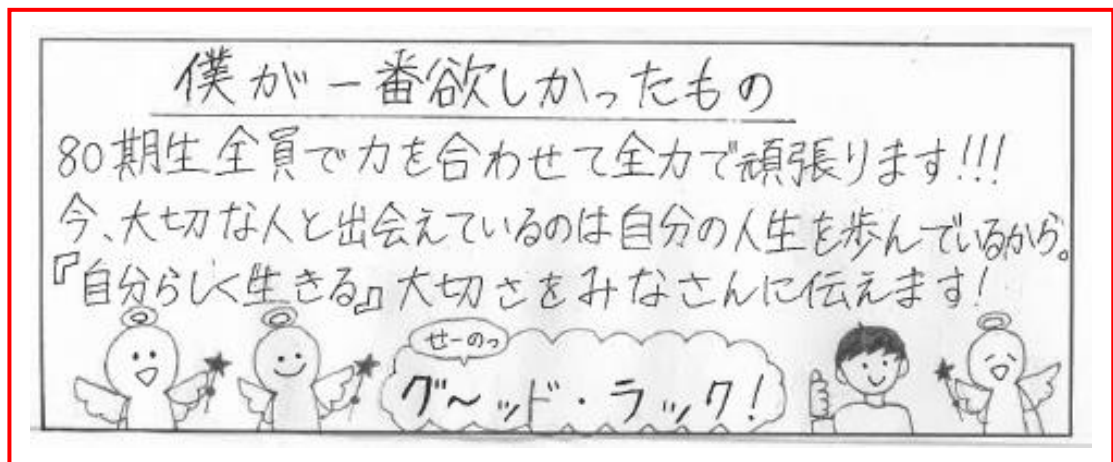 僕が一番欲しかったもの
80期生全員で力を合わせて全力で頑張ります!!!
今、大切な人と出会えているのは自分の人生を歩んでいるから。
『自分らしく生きる』大切さをみなさんに伝えます!
せーのっ
グ〜ッド・ラック!